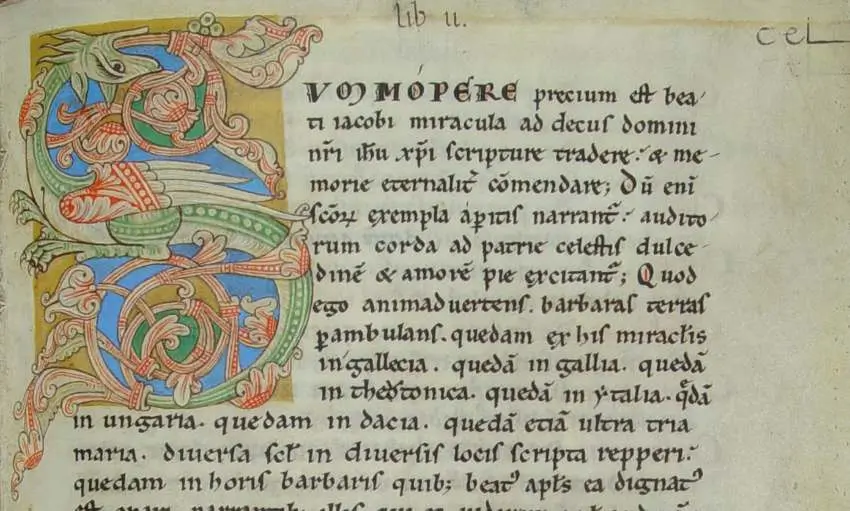 lib ii.
cel
SUMMÓPERE precium est bea
ti iacobi miracula ad decus domini
nr̄i ih̄u xp̄i scripture tradere. & me-
morie eternalit̄ cōmendare; Dū eni
sc̄oꝝ exempla áꝑitis narrant᷑. audito
rum corda ad patrie celestis dulce-
dinē & amorē pie excitant᷑; Quod
ego animaduertens. barbaras terras
ꝑambulans. quedam ex his miracl̄is
in gallecia. quedā in gallia. quedā
in theotonica. quedā in ytalia. q̄dā
in ungaria. quedam in dacia. quedā etiā ultra tria
maria. diuersa scł in diuersis locis scripta repperi.
quedam in horis barbaris quib; beatꝰ apl̄s ea dignatꝰ